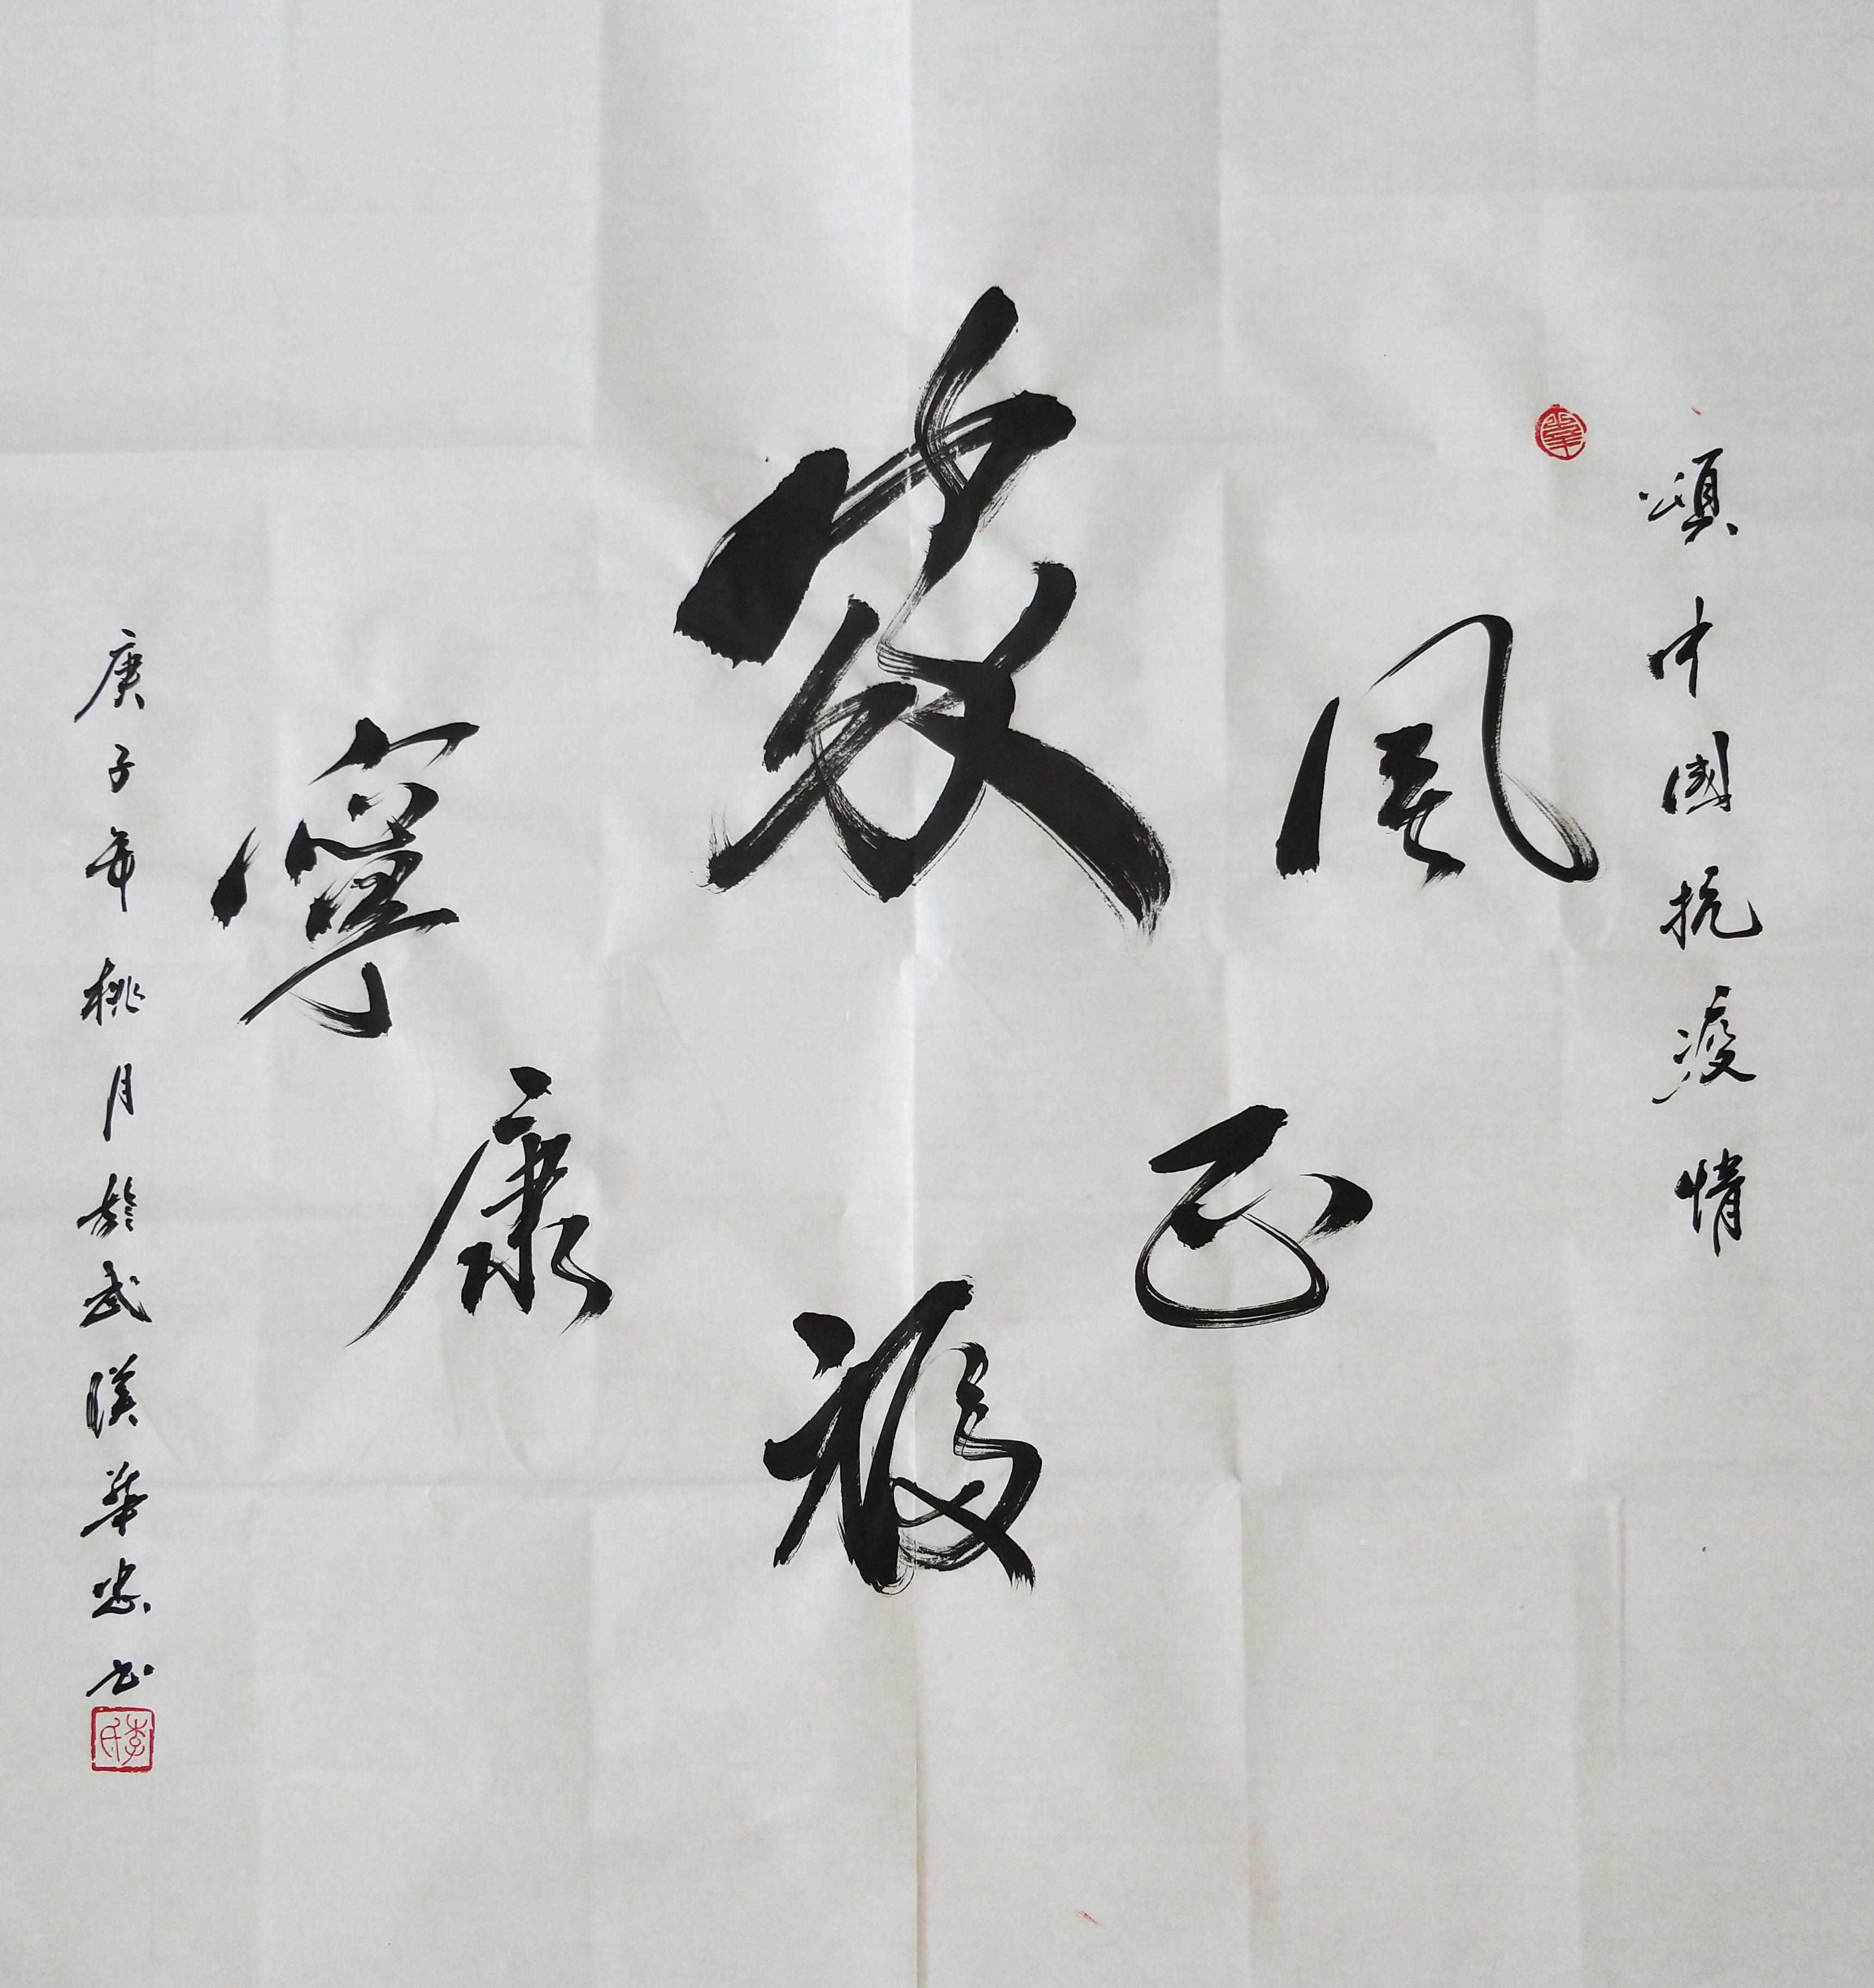 頌中國抗疫情
風正
家福
康寧
庚子年桃月於武漢華忠书
李氏